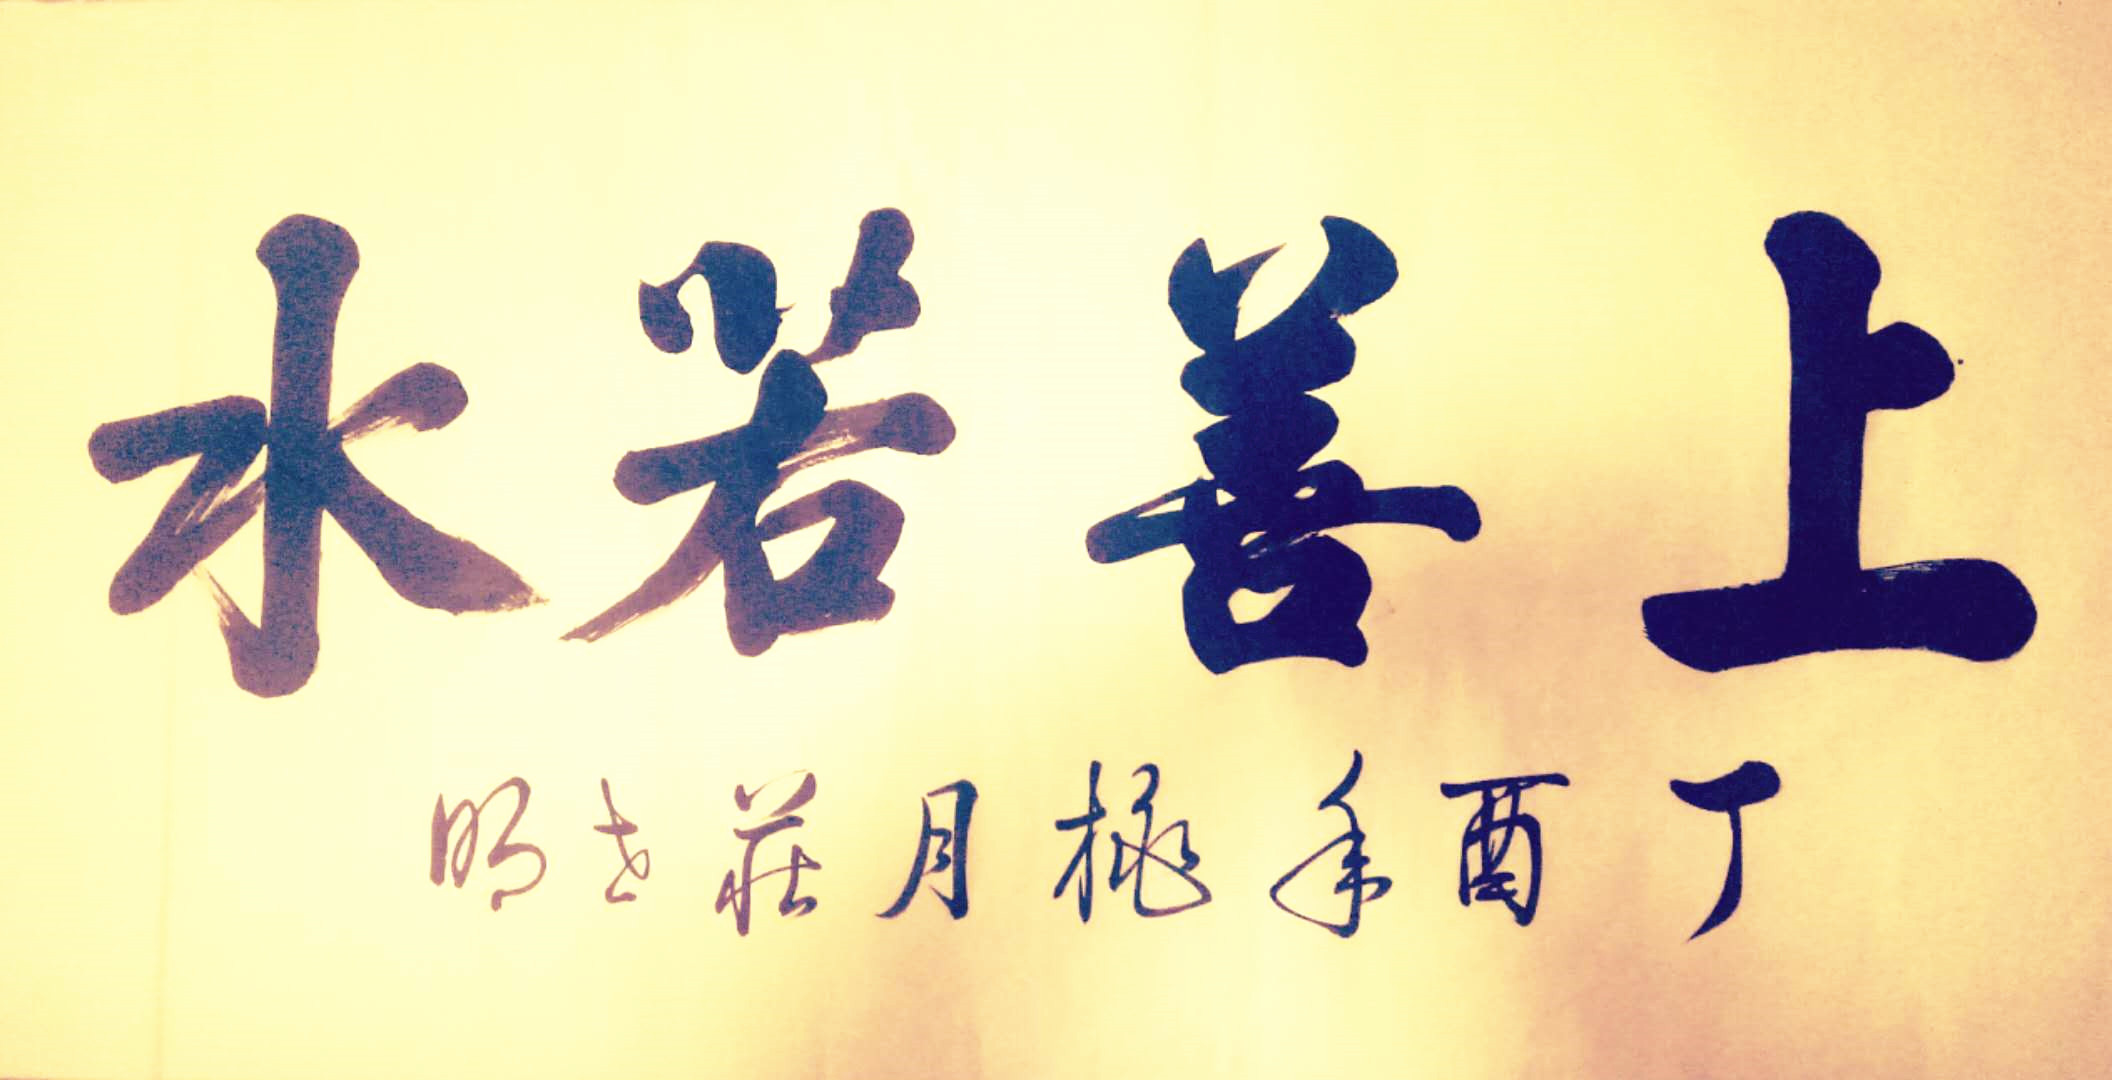 上善若水
丁酉年桃月莊志明